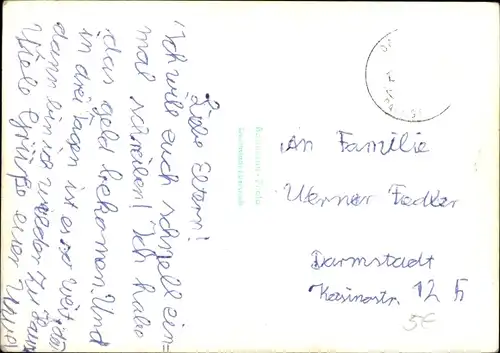 Liebe Eltern!
Ich will euch schnell ein=
mal schreiben! Ich habe
das geld bekomen. Und
in drei Tagen ist es so weit,
dann bin ich wieder zu Hau
Viele Grüße euer
An Familie
Werner Fedler
Darmstadt
Kasinostr. 12 h
5€